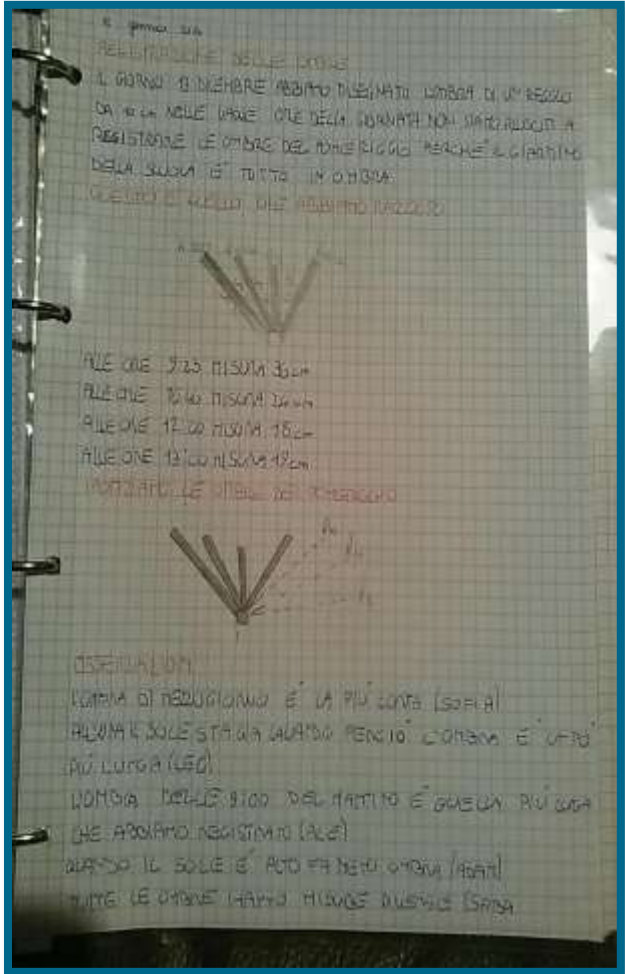 IL GIORNO 13 DICEMBRE ABBIAMO DISEGNATO L'OMBRA DI UN REGOLO
DA 10 cm NELLE VARIE ORE DELLA GIORNATA NON SIAMO RIUSCITI A
REGISTRARE LE OMBRE DEL POMERIGGIO PERCHE' IL GIARDINO
DELLA SCUOLA E' TUTTO IN OMBRA.
QUESTO E' QUELLO CHE ABBIAMO RACCOLTO
ALLE ORE 9:25 MISURA 36 cm
ALLE ORE MISURA cm
ALLE ORE 12:00 MISURA 18 cm
ALLE ORE 13:00 MISURA 19 cm
IPOTIZZIAMO LE OMBRE DEL POMERIGGIO
OSSERVAZIONI
L'OMBRA DI MEZZOGIORNO E' LA PIU' CORTA (SOFIA)
ALLORA IL SOLE STA GIA CALANDO PERCIO' L'OMBRA E' UN PO'
PIU' LUNGA (LEO)
L'OMBRA DELLE DEL MATTINO E' QUELLA PIU' LUNGA
CHE ABBIAMO REGISTRATO (ALE)
QUANDO IL SOLE E' ALTO FA MENO OMBRA (ADAM)
TUTTE LE OMBRE HANNO MISURE DIVERSE (SARA